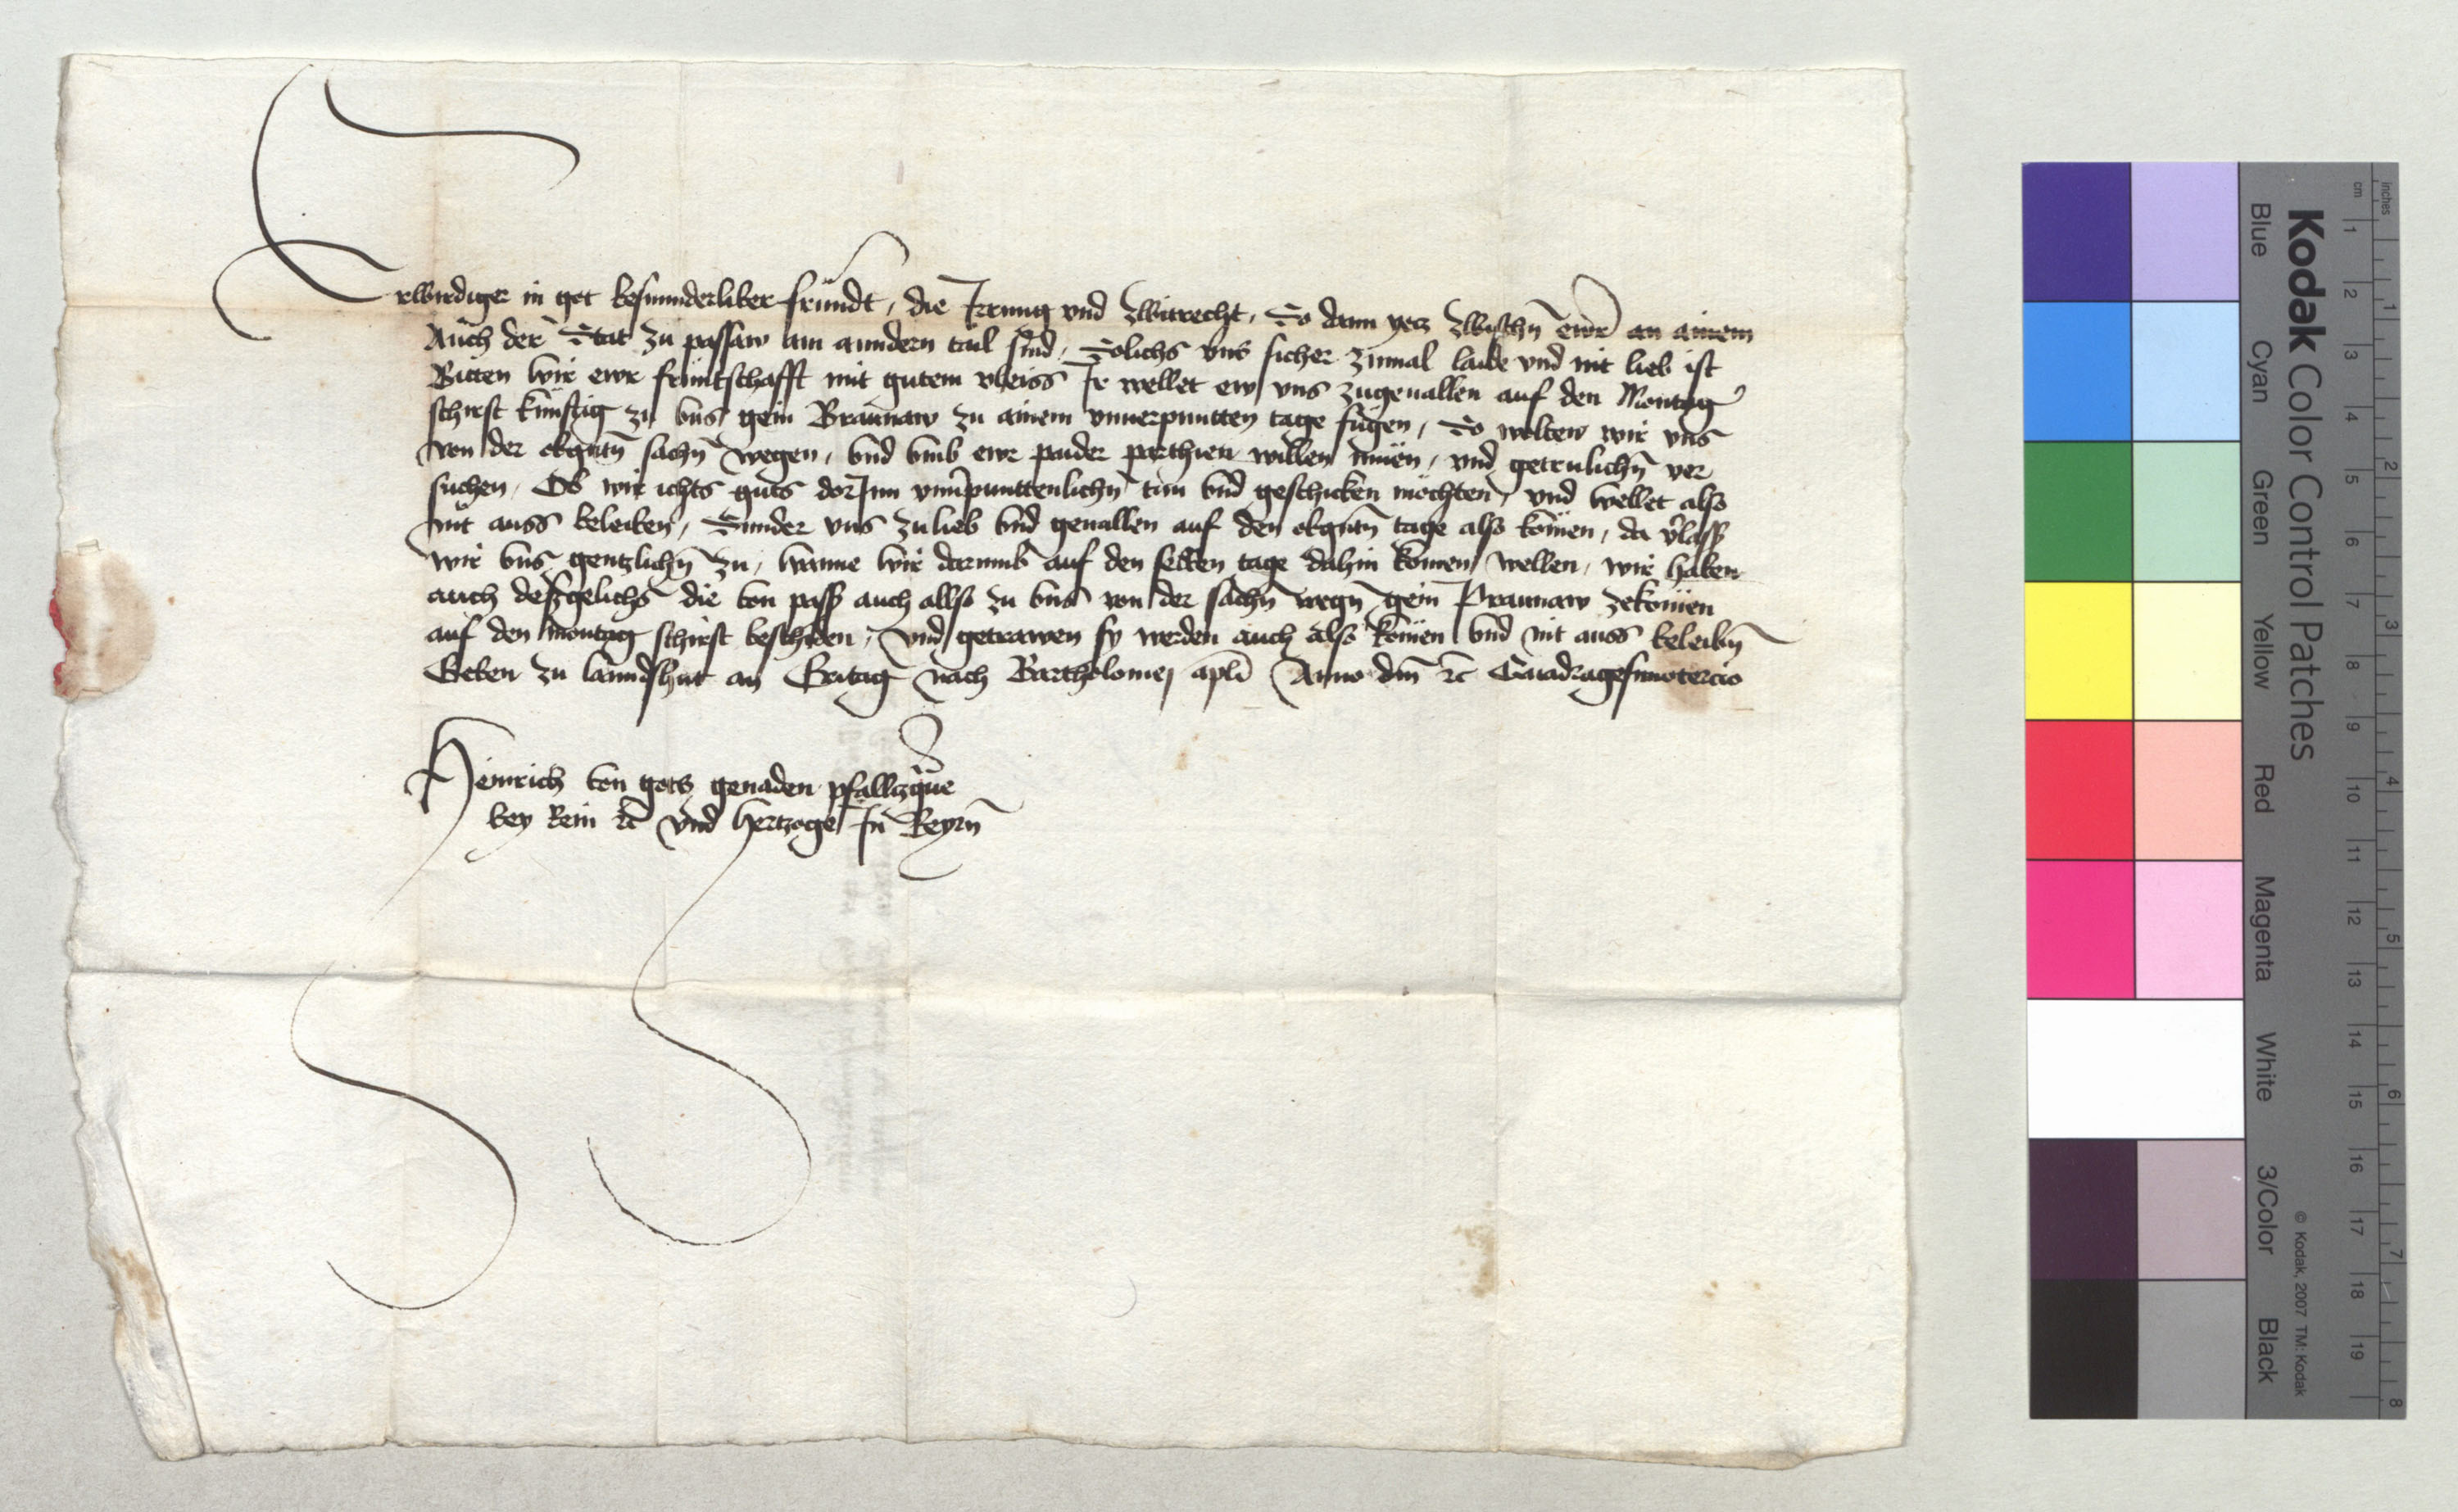 Erwirdiger in got besunnderlieber fründt, die Irrung vnd zwitrecht, So dann yecz zwischn̄ ewr̄ an ainem
Auch der Stat zu passaw am anndern tail sind, Solichs vns sicher zumal laide vnd nit lieb ist
Bitten wir ewr früntschafft mit gutem vleiss Ir wellet ew vns zugeuallen auf den Montag
schirst künftig zu vns gein Braunaw zu ainem vnuerpuntten tage fügen, So wolten wir vns
von der obgntn̄ sachn̄ wegen, vnd vmb ewr paider parthien willen müen, vnd getrulichn̄ ver
suchen, Ob wir ichts guts dorInn vnuerpunttenlichn̄ tün vnd geschicken möchten, vnd wellet also
nit auss beleiben, Sunder vns zulieb vnd geuallen auf den obgntn̄ tage also komen, da v̄lass
wir vns gentzlichn̄ zu, wanne wir darumb auf den selben tage dahin komen wellen, wir haben
auch deszgelichs die von pass auch allso zu vns von der sachn̄ wegn̄ gein Braunaw zekomen
auf den montag schirst beschiden, vnd getrawen sy werden auch also komen vnd nit auss beleibn̄
Geben zu lanndshut an Eritag nach Bartholomej apl̄i Anno dm̄ ꝛc̄ Quadragesimotercio
Heinrich von gots genaden pfalltzgraue
bey Rein ꝛc̄ vnd hertzoge In Beyrn̄
Kodak Color Control Patches
Blue Cyan Green Yellow Red Magenta White 3/Color Black
© Kodak, 2007 TM: Kodak
cm 1 2 3 4 5 6 7 8 9 10 11 12 13 14 15 16 17 18 19
inches 1 2 3 4 5 6 7 8